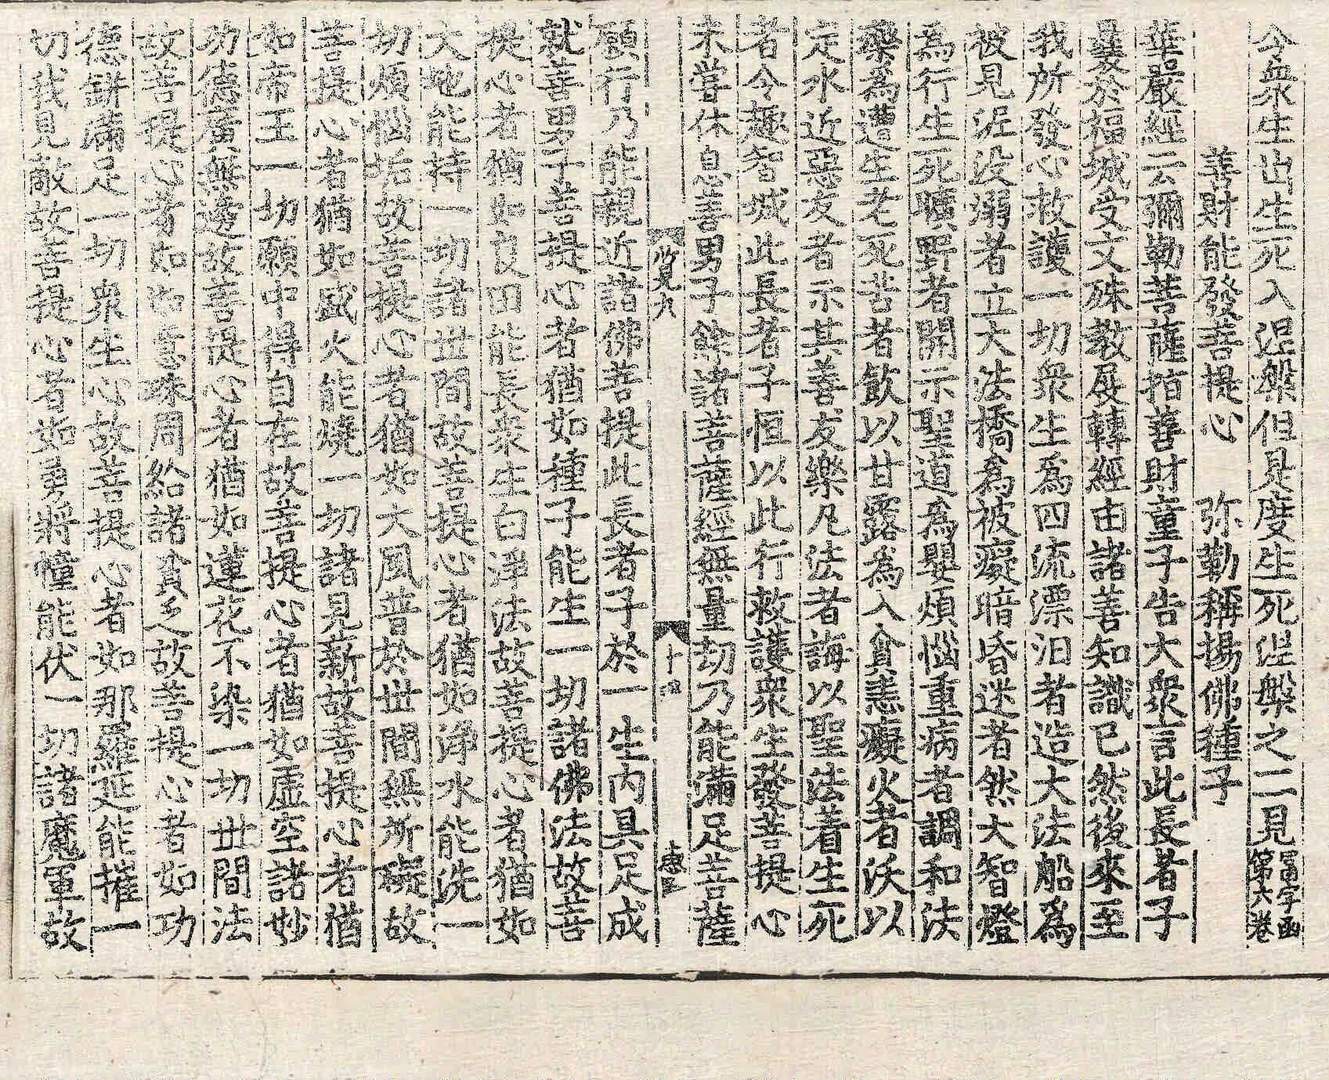 令衆生出生死入涅槃但是度生死涅槃之二見 冨字函第六卷
善財能發菩提心 弥勒稱揚佛種子
華嚴經云彌勒菩薩指善財童子告大衆言此長者子
曩於福城受文殊教展轉經由諸善知識已然後來至
我所發心救護一切衆生爲四流漂汩者造大法船爲
被見泥没溺者立大法橋爲被癡暗昏迷者然大智燈
爲行生死曠野者開示聖道爲嬰煩惱重病者調和法
藥爲遭生老死苦者飲以甘露爲入貪恚癡火者沃以
定水近惡友者示其善友樂凡法者誨以聖法著生死
者令趣智城此長者子恒以此行救護衆生發菩提心
未嘗休息善男子餘諸菩薩經無量劫乃能滿足菩薩
覽九 十
願行乃能親近諸佛菩提此長者子於一生内具足成
就善男子菩提心者猶如種子能生一切諸佛法故菩
提心者猶如良田能長衆生白淨法故菩提心者猶如
大地能持一切諸世間故菩提心者猶如淨水能洗一
切煩惱垢故菩提心者猶如大風普於世間無所礙故
菩提心者猶如盛火能燒一切諸見薪故菩提心者猶
如帝王一切願中得自在故菩提心者猶如虛空諸妙
功德廣無邊故菩提心者猶如蓮花不染一切世間法
故菩提心者如如意珠周給諸貧乏故菩提心者如功
德缾滿足一切衆生心故菩提心者如那羅延能摧一
切我見敵故菩提心者如勇將幢能伏一切諸魔軍故